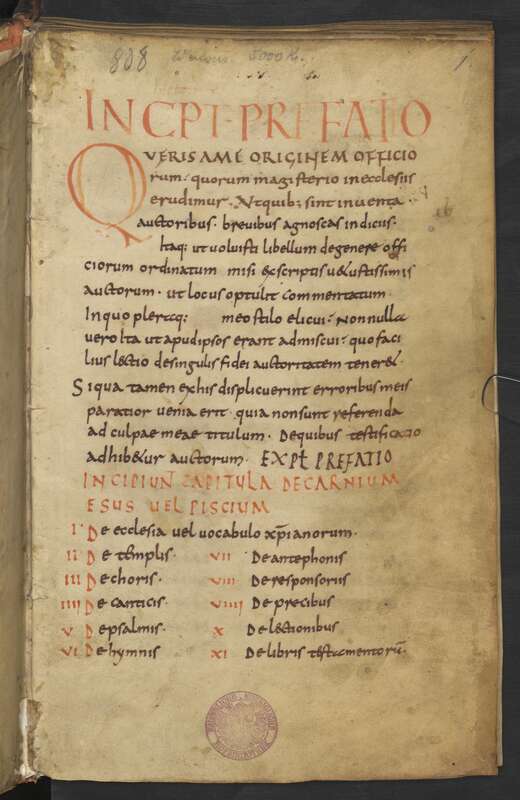 808
1
INCPT PREFATIO
QVERIS A ME ORIGINEM OFFICIO
rum · quorum magisterio in ecclesiis
erudimur · Ut quib; sint inventa
auctoribus · brevibus agnoscas indiciis ·
Itaq; ut voluisti libellum de genere offi
ciorum ordinatum misi & scriptis v&ustissimis
auctorum · ut locus optulit commentatum
In quo pleraq; meo stilo elicui · Non nulla
vero ita ut apud ipsos erant admiscui · quo faci
lius lectio de singulis fidei auctoritatem tener& ·
Si qua tamen ex his displicuerint erroribus meis
paratior venia erit · quia non sunt referenda
ad culpae meae titulum · De quibus testificatio
adhib&ur auctorum · EXPLT PREFATIO
INCIPIUN CAPITULA DE CARNIUM
ESUS UEL PISCIUM
I De ecclesia vel vocabulo xp̄ianorum ·
II De templis · VII De antephonis
III De choris · VIII De responsoriis
IIII De canticis · VIIII De precibus
V De psalmis · X De lectionibus
VI De hymnis XI De libris testamentorū ·